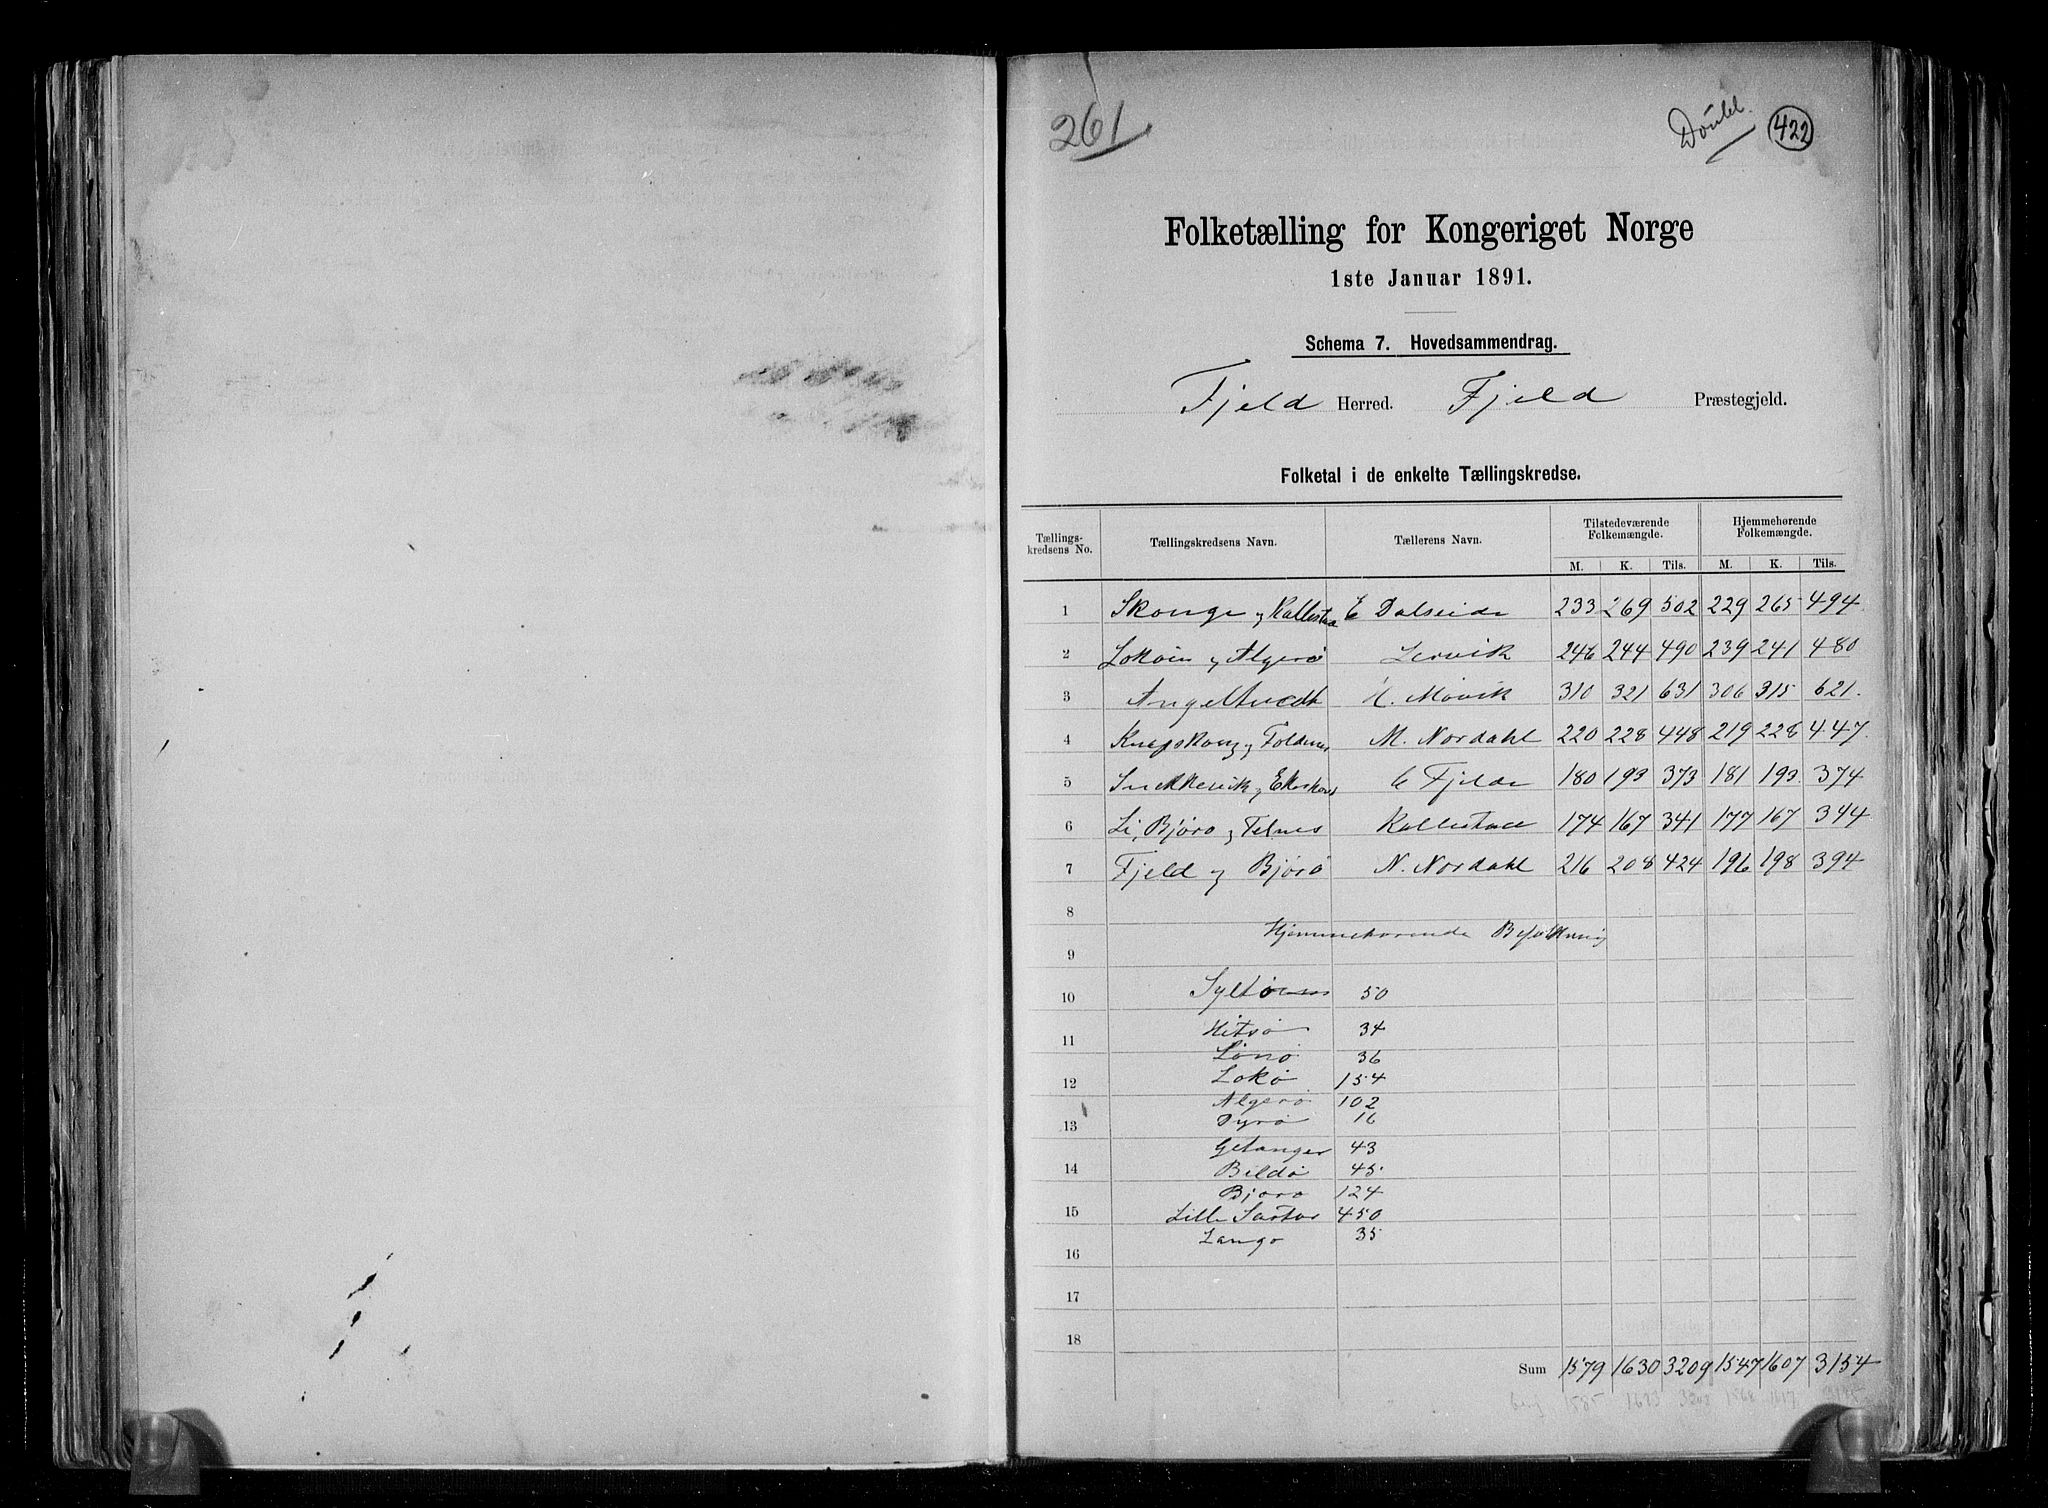 261
Doubl.
422
Folketælling for Kongeriget Norge
1ste Januar 1891.
Schema 7. Hovedsammendrag.
Fjeld Herred. Fjeld Præstegjeld.
Folketal i de enkelte Tællingskredse.
Tællings-kredsens No. Tællingskredsens Navn. Tællerens Navn. Tilstedeværende Folkemængde. Hjemmehørende Folkemængde.
M. K. Tils. M. K. Tils.
1 Skonge y Kallestad E Dalseide 233 269 502 229 265 494
2 Lokøen y Algerø Lervik 246 244 490 239 241 480
3 Angeltvedt H. Møvik 310 321 631 306 315 621.
4 Knapskong y Foldnes M. Nordahl 220 228 448 219 228 447.
5 Snekkevik y Ekerhovd C Fjelde 180 193 373 181 193 374
6 Li, Bjørø y Telnes Kallestad 174 167 341 177 167 344
7 Fjeld y Bjørø N. Nordahl 216 208 424 196 198 394
8
Hjemmehørende Befolkning
9
10 Syltøen 50
11 Hitsø 34
Lønø 36
12 Lokø 154
Algerø 102
13 Dyrø 16
Geitanger 43
14 Bildø 45
Bjorø 124
15 Lille Sartor 450
Langø 35
16
17
18
Sum 1579 1630 3209 1547 1607 3154